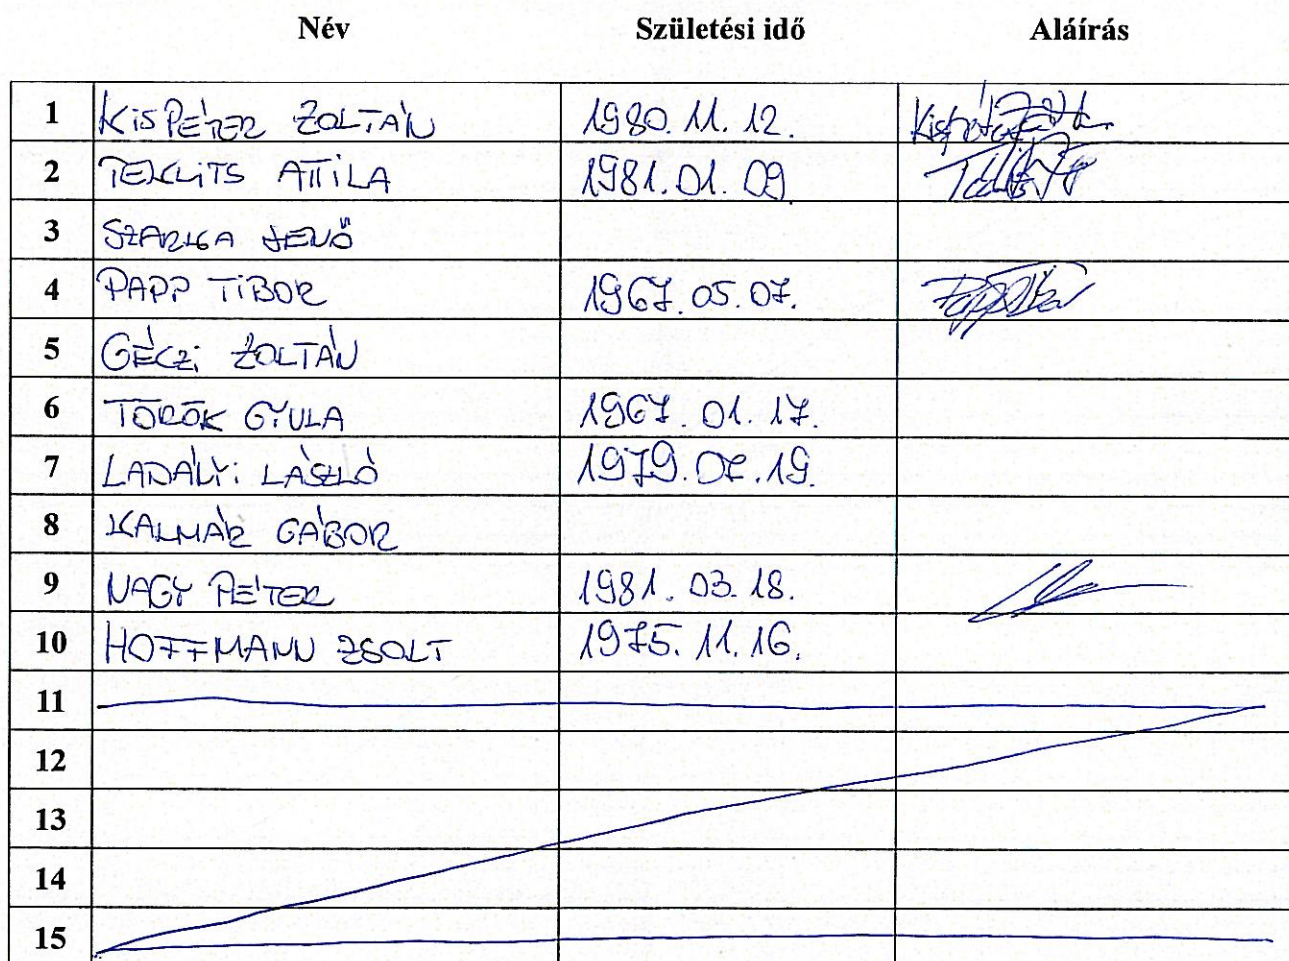 Név Születési idő Aláírás
1 KISPÉTER ZOLTÁN 1980.11.12.
2 TEKLITS ATTILA 1981.01.09.
3 SZARKA JENŐ
4 PAPP TIBOR 1967.05.07. Papp Tibor
5 GÉCZI ZOLTÁN
6 TÖRÖK GYULA 1967.01.17.
7 LADÁLYI LÁSZLÓ 1979.07.19.
8 KALMÁR GÁBOR
9 NAGY PÉTER 1981.03.18.
10 HOFFMANN ZSOLT 1975.11.16.
11
12
13
14
15